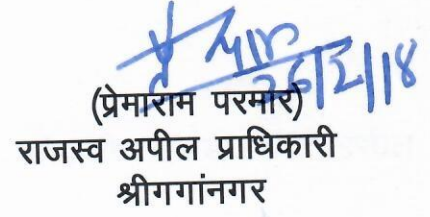 26/2/18
(प्रेमाराम परमार)
राजस्व अपील प्राधिकारी
श्रीगगांनगर